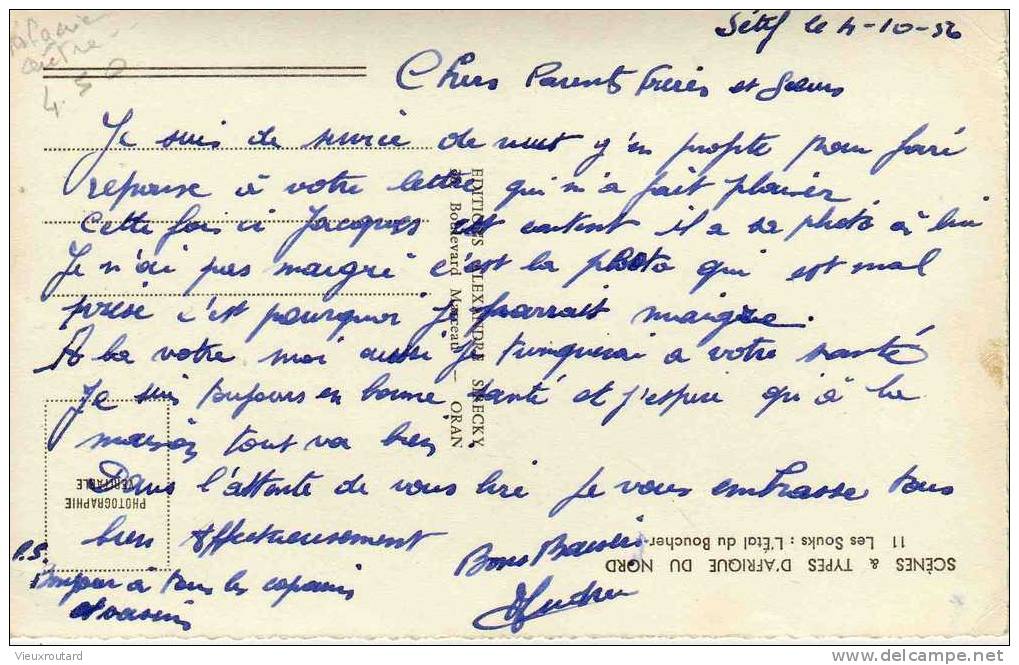 Sétif le 4-10-56
Chers Parents Frères et Sœurs
Je suis de service de nuit j'en profite pour faire
reponse à votre lettre qui m'a fait plaisir
Cette fois ci Jacques est content il a sa photo à lui
Je n'ai pas maigri c'est la photo qui est mal
prise c'est pourquoi je parrait maigre.
A la votre moi aussi je trinquerai a votre santé
Je suis toujours en bonne santé et j'espere qu'à la
maison tout va bien
Dans l'attente de vous lire je vous embrasse tous
bien affectueusement
Bons Baisers
P.S.
Bonjour à tous les copains
et voisins
EDITIONS ALEXANDRE SIRECKY
Boulevard — ORAN
PHOTOGRAPHIE
VERITABLE
SCÈNES & TYPES D'AFRIQUE DU NORD
11 Les Souks : L'Étal du Boucher
4.50
Vieuxroutard
www.delcampe.net